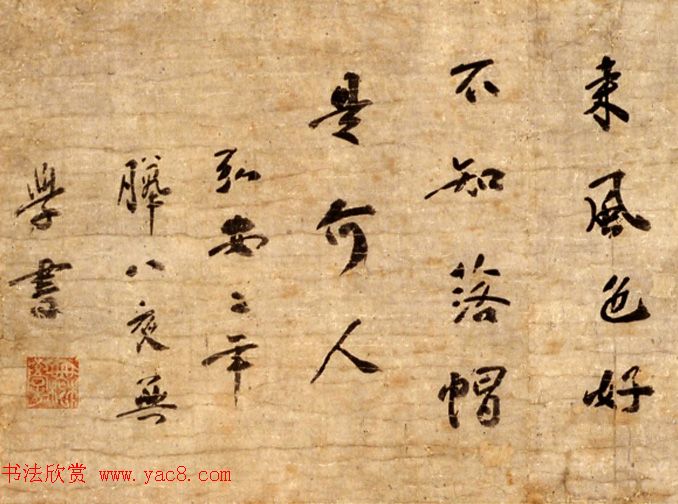 来風色好
不知落帽
是何人
弘安二年
臘八夜無
学書
书法欣赏 www.yac8.com